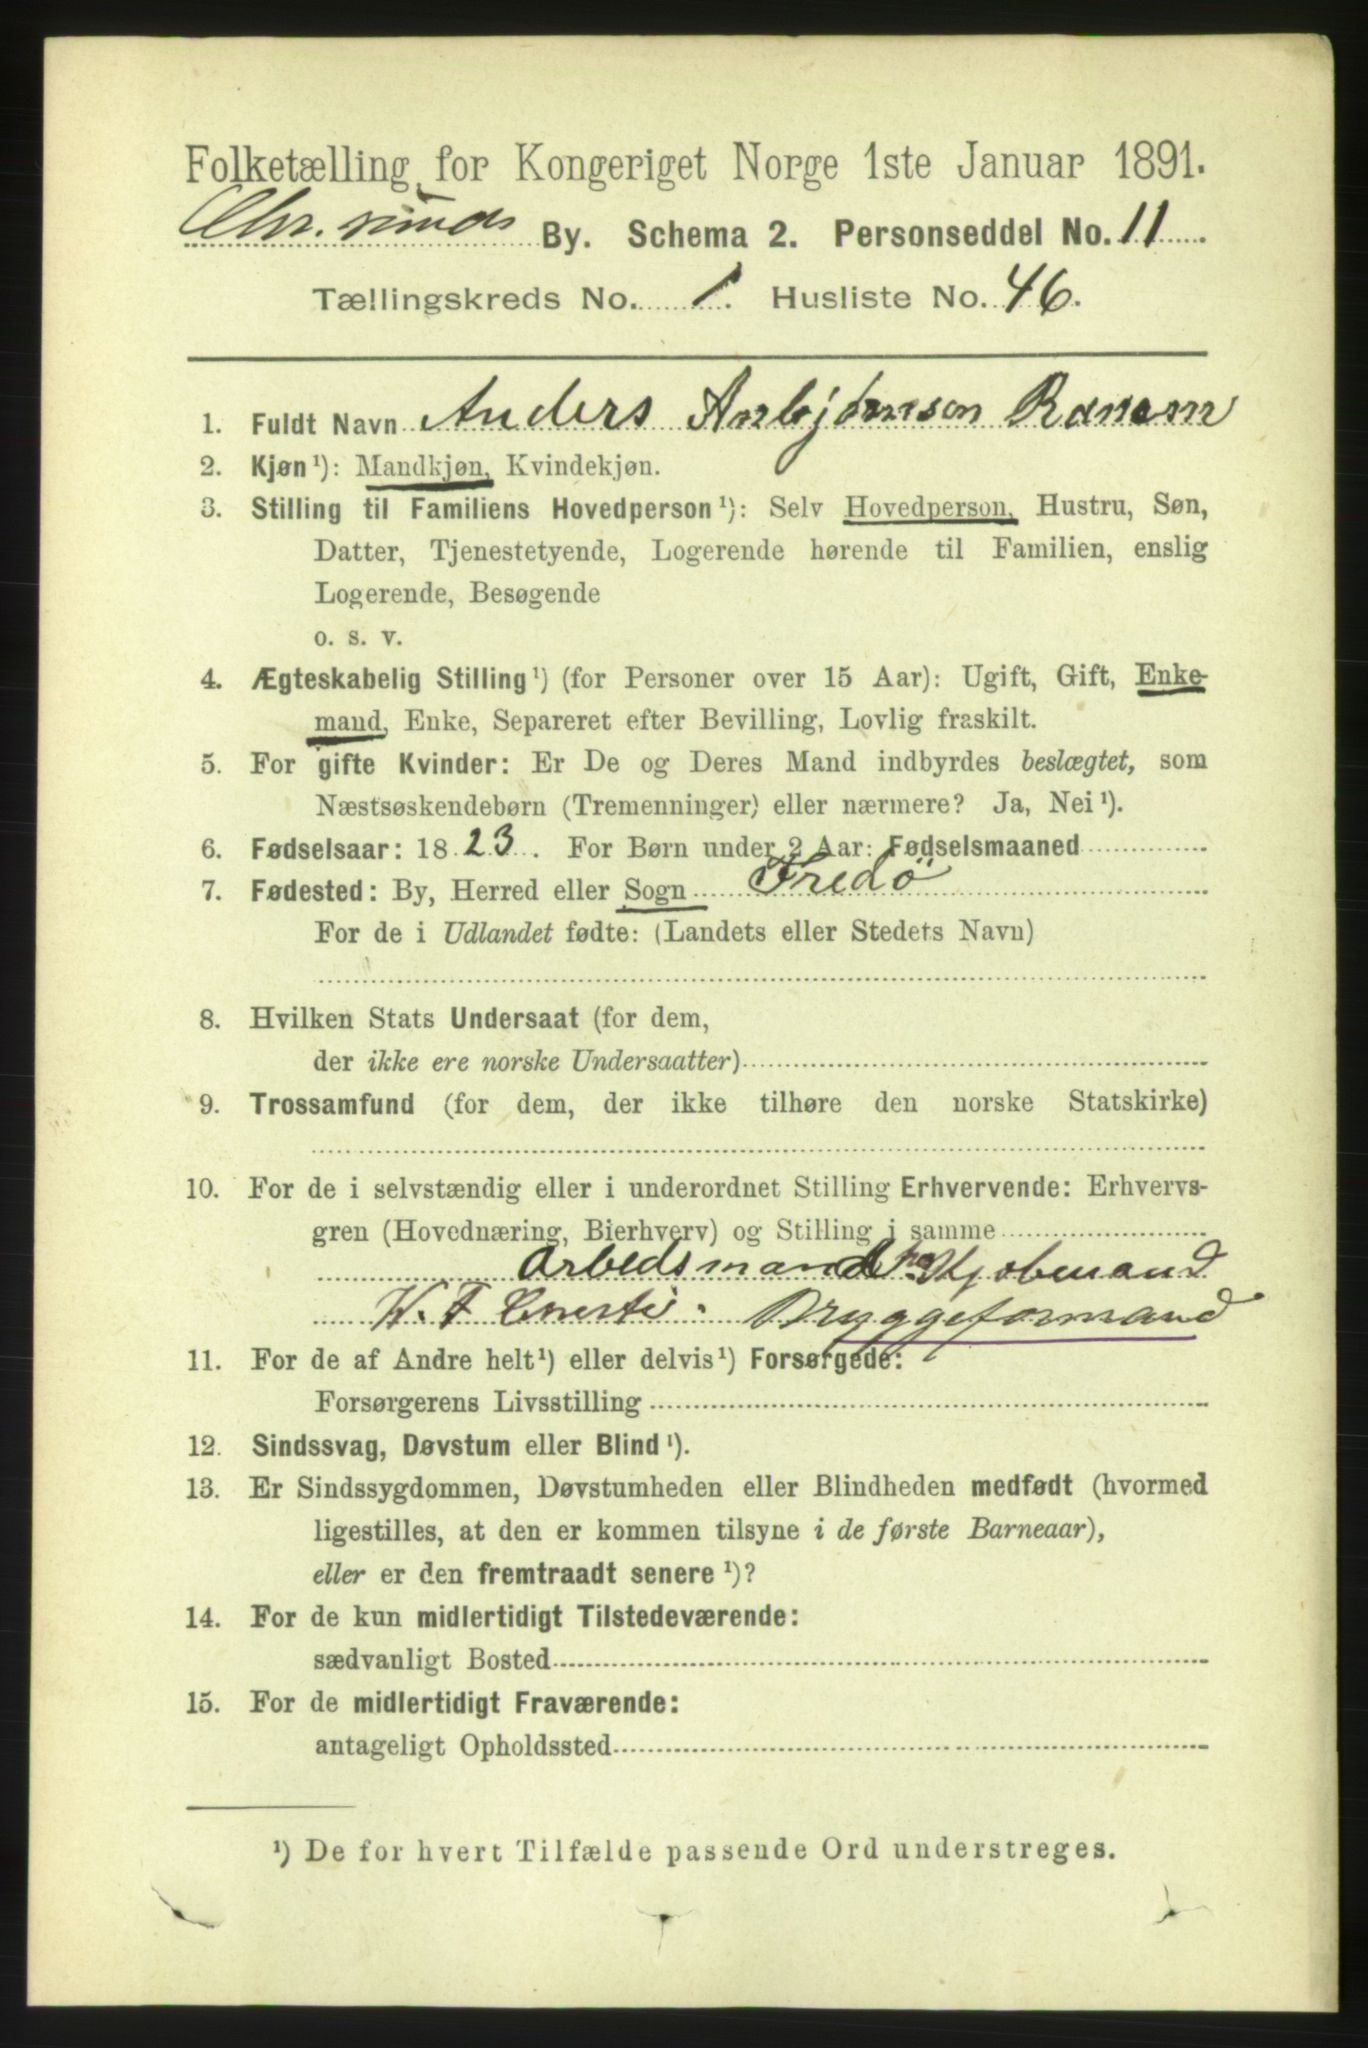 Folketælling for Kongeriget Norge 1ste Januar 1891.
Chr.sunds By. Schema 2. Personseddel No. 11
Tællingskreds No. 1. Husliste No. 46.
1. Fuldt Navn Anders Anbjørnson Ranem
2. Kjøn¹): Mandkjøn, Kvindekjøn.
3. Stilling til Familiens Hovedperson¹): Selv Hovedperson, Hustru, Søn,
Datter, Tjenestetyende, Logerende hørende til Familien, enslig
Logerende, Besøgende
o. s. v.
4. Ægteskabelig Stilling¹) (for Personer over 15 Aar): Ugift, Gift, Enke-
mand, Enke, Separeret efter Bevilling, Lovlig fraskilt.
5. For gifte Kvinder: Er De og Deres Mand indbyrdes beslægtet, som
Næstsøskendebørn (Tremenninger) eller nærmere? Ja, Nei¹).
6. Fødselsaar: 1823. For Børn under 2 Aar: Fødselsmaaned
7. Fødested: By, Herred eller Sogn Fredö
For de i Udlandet fødte: (Landets eller Stedets Navn)
8. Hvilken Stats Undersaat (for dem,
der ikke ere norske Undersaatter)
9. Trossamfund (for dem, der ikke tilhøre den norske Statskirke)
10. For de i selvstændig eller i underordnet Stilling Erhvervende: Erhvervs-
gren (Hovednæring, Bierhverv) og Stilling i samme
Arbedsmand Kjobmand
W. F Bryggeformand
11. For de af Andre helt¹) eller delvis¹) Forsørgede:
Forsørgerens Livsstilling
12. Sindssvag, Døvstum eller Blind¹).
13. Er Sindssygdommen, Døvstumheden eller Blindheden medfødt (hvormed
ligestilles, at den er kommen tilsyne i de første Barneaar),
eller er den fremtraadt senere¹)?
14. For de kun midlertidigt Tilstedeværende:
sædvanligt Bosted
15. For de midlertidigt Fraværende:
antageligt Opholdssted
¹) De for hvert Tilfælde passende Ord understreges.